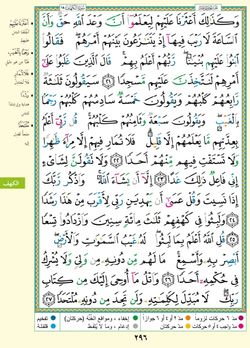 وَكَذَٰلِكَ أَعْثَرْنَا عَلَيْهِمْ لِيَعْلَمُوٓا۟ أَنَّ وَعْدَ ٱللَّهِ حَقٌّ وَأَنَّ
ٱلسَّاعَةَ لَا رَيْبَ فِيهَآ إِذْ يَتَنَٰزَعُونَ بَيْنَهُمْ أَمْرَهُمْ ۖ فَقَالُوا۟
ٱبْنُوا۟ عَلَيْهِم بُنْيَٰنًا ۖ رَّبُّهُمْ أَعْلَمُ بِهِمْ ۚ قَالَ ٱلَّذِينَ غَلَبُوا۟ عَلَىٰٓ
أَمْرِهِمْ لَنَتَّخِذَنَّ عَلَيْهِم مَّسْجِدًا ۝٢١ سَيَقُولُونَ ثَلَٰثَةٌ
رَّابِعُهُمْ كَلْبُهُمْ وَيَقُولُونَ خَمْسَةٌ سَادِسُهُمْ كَلْبُهُمْ
رَجْمًۢا بِٱلْغَيْبِ ۖ وَيَقُولُونَ سَبْعَةٌ وَثَامِنُهُمْ كَلْبُهُمْ ۚ قُل رَّبِّىٓ أَعْلَمُ
بِعِدَّتِهِم مَّا يَعْلَمُهُمْ إِلَّا قَلِيلٌ ۗ فَلَا تُمَارِ فِيهِمْ إِلَّا مِرَآءً ظَٰهِرًا
وَلَا تَسْتَفْتِ فِيهِم مِّنْهُمْ أَحَدًا ۝٢٢ وَلَا تَقُولَنَّ لِشَا۟ىْءٍ
إِنِّى فَاعِلٌ ذَٰلِكَ غَدًا ۝٢٣ إِلَّآ أَن يَشَآءَ ٱللَّهُ ۚ وَٱذْكُر رَّبَّكَ
إِذَا نَسِيتَ وَقُلْ عَسَىٰٓ أَن يَهْدِيَنِ رَبِّى لِأَقْرَبَ مِنْ هَٰذَا رَشَدًا
۝٢٤ وَلَبِثُوا۟ فِى كَهْفِهِمْ ثَلَٰثَ مِا۟ئَةٍ سِنِينَ وَٱزْدَادُوا۟ تِسْعًا
۝٢٥ قُلِ ٱللَّهُ أَعْلَمُ بِمَا لَبِثُوا۟ ۖ لَهُۥ غَيْبُ ٱلسَّمَٰوَٰتِ وَٱلْأَرْضِ ۖ
أَبْصِرْ بِهِۦ وَأَسْمِعْ ۚ مَا لَهُم مِّن دُونِهِۦ مِن وَلِىٍّ وَلَا يُشْرِكُ
فِى حُكْمِهِۦٓ أَحَدًا ۝٢٦ وَٱتْلُ مَآ أُوحِىَ إِلَيْكَ مِن كِتَابِ
رَبِّكَ ۖ لَا مُبَدِّلَ لِكَلِمَٰتِهِۦ وَلَن تَجِدَ مِن دُونِهِۦ مُلْتَحَدًا ۝٢٧
الكهف
٢٩٦